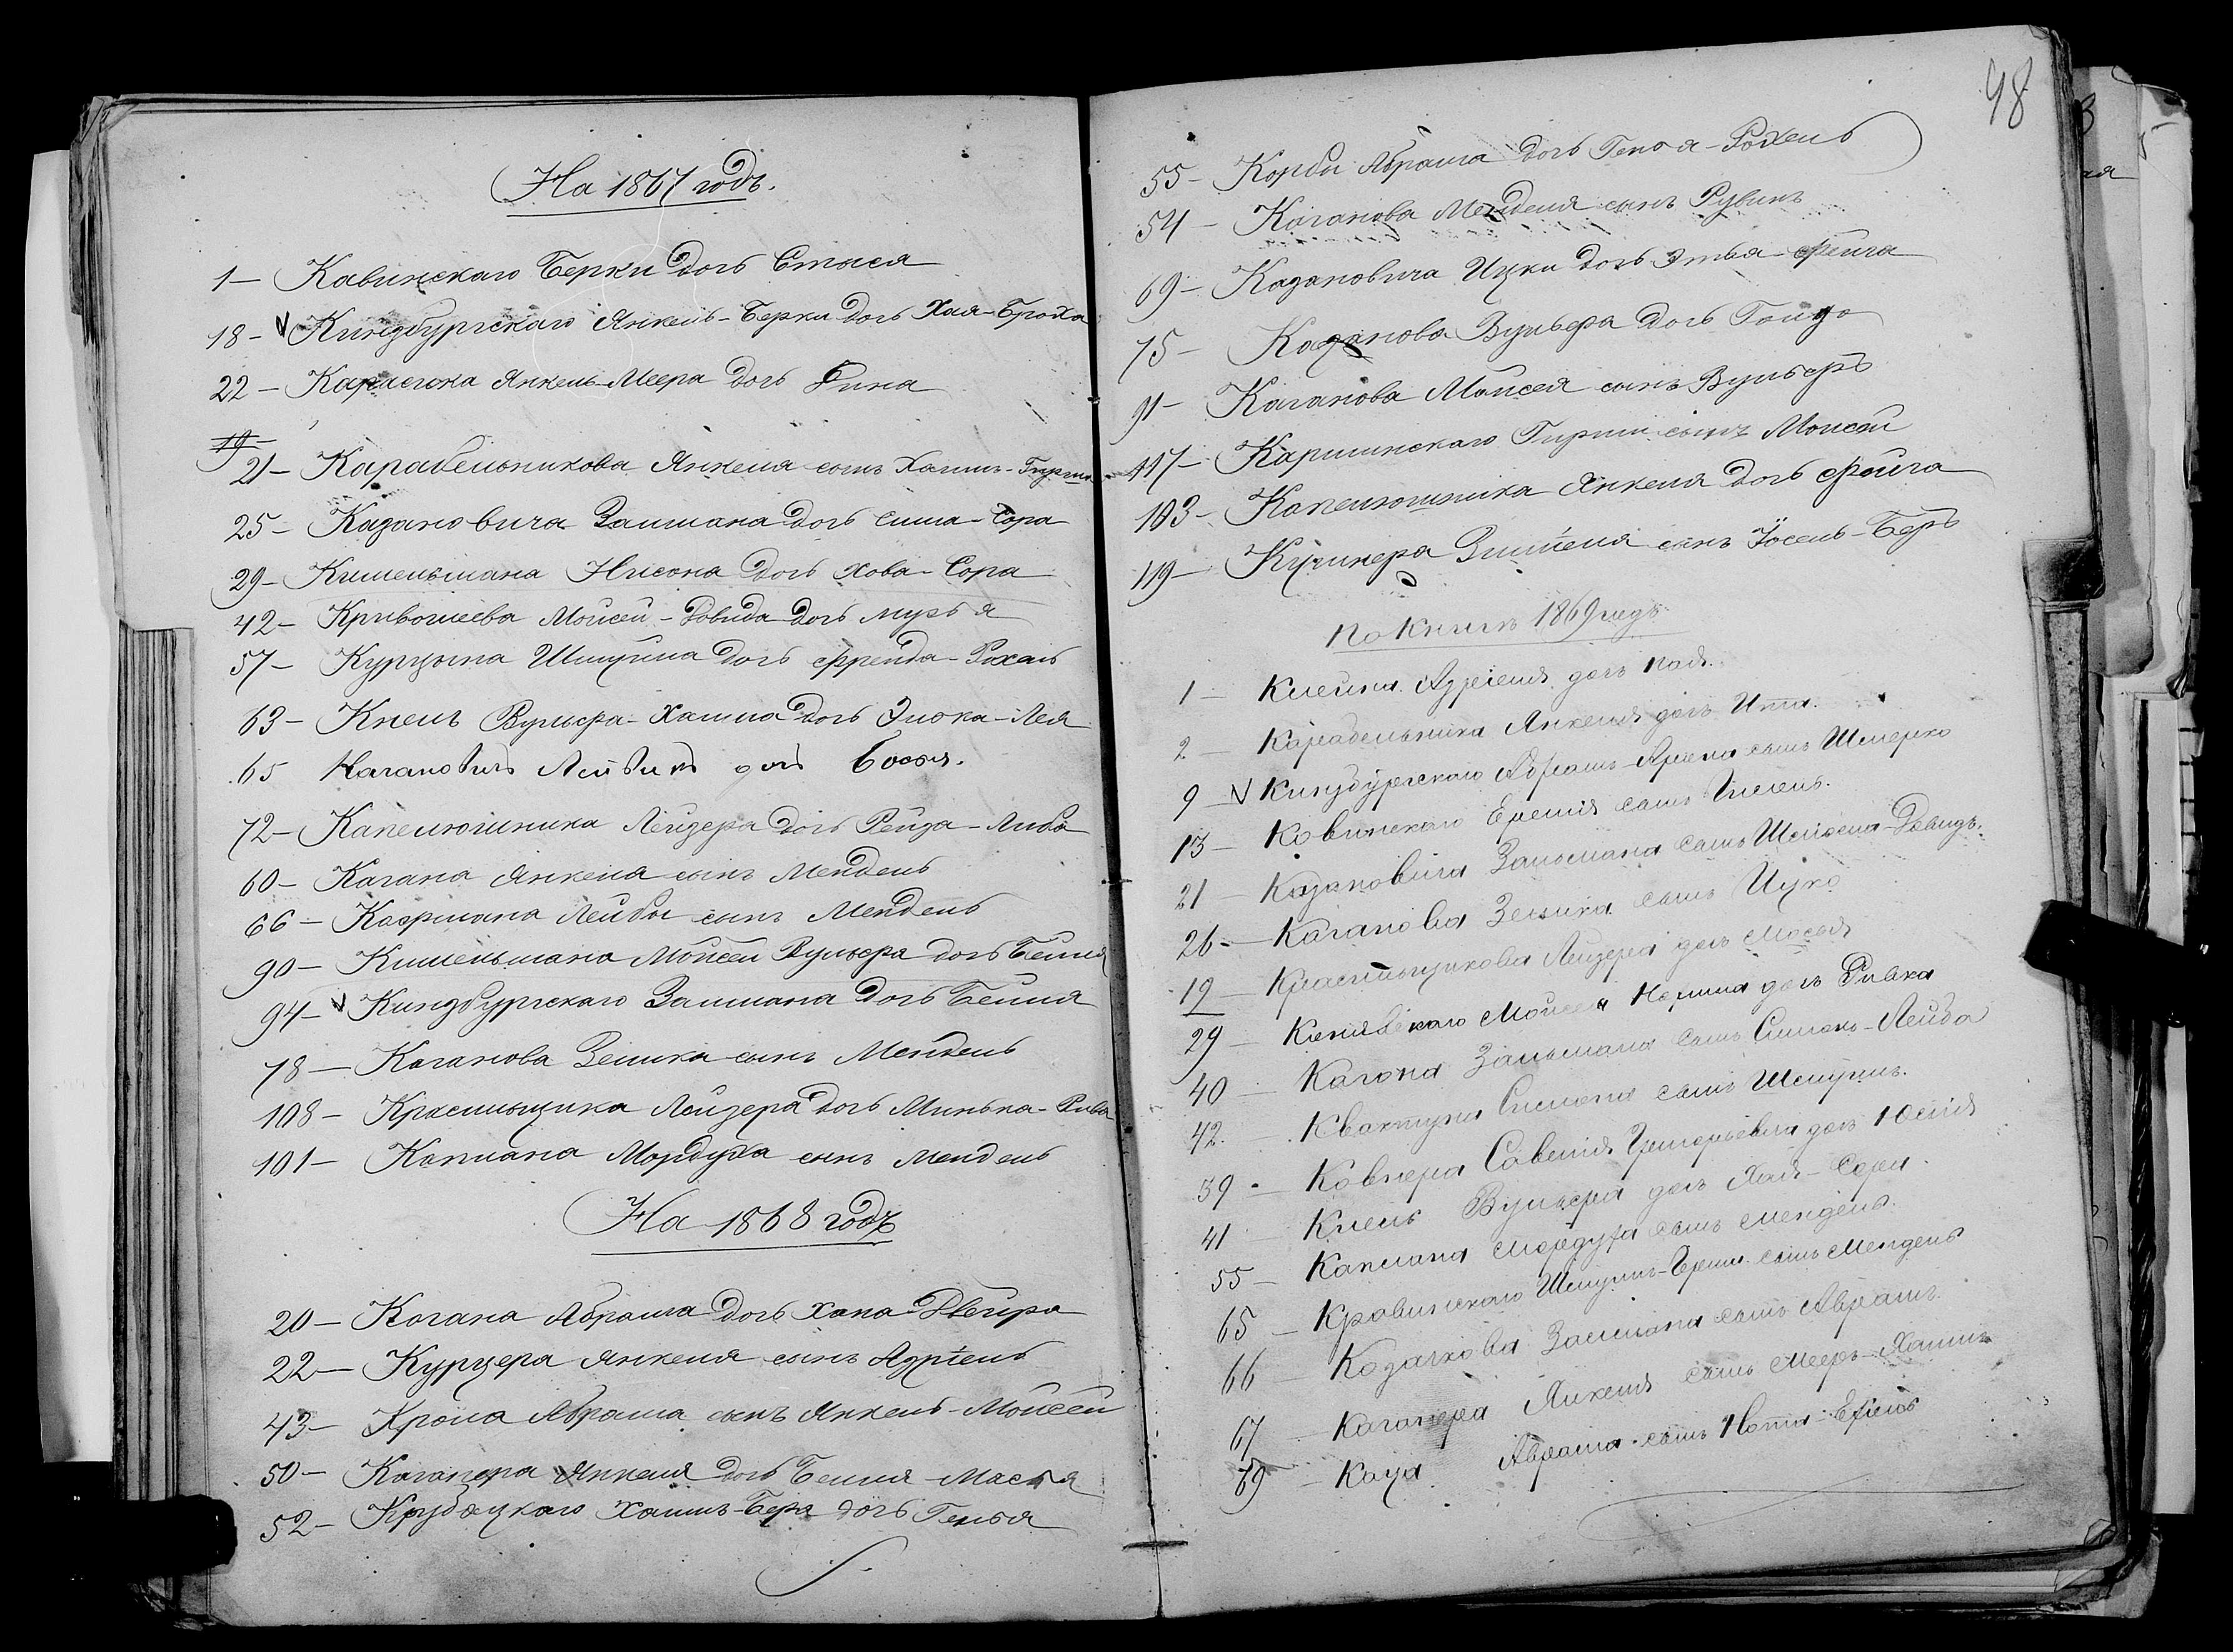 На 1867 годъ.
1 — Кавинскаго Берки дочь Стася
18 - V Кинзбургскаго Янкель-Берки дочь Хая-Броха
22 — Карасика Янкель-Меера дочь Рина
19 —
21 — Карабельникова Янкеля сынъ Хаимъ-Гирша
25 — Казановича Залмана дочь Сима-Сора
29 — Кишельмана Нисона дочь Хова-Сора
42 — Кривошеева Мойсей-Довида дочь
57 — Курцына Шмуйла дочь Фрейда-Рохель
63 — Кнель Вульфа-Хаима дочь Элька-Лея
65 Кагановичъ Лейвикъ дочь Бося.
72 — Капелюшника Лейзера дочь Рейза-Либа
60 — Кагана Янкеля сынъ Мендель
66 — Кофмана Лейбы сынъ Мендель
90 — Кишельмана Мойсей Вульфа дочь Бейля
94 — V Кинзбургскаго Залмана дочь Бейля
78 — Каганова Зелика сынъ Мендель
108 — Красильщика Лейзера дочь Минька-Рива
101 — Каплана Мордуха сынъ Мендель
На 1868 годъ
20 — Когана Абрама дочь Хана-Двейра
22 — Курцера Янкеля сынъ Азріель
43 — Крола Абрама сынъ Янкель-Мойсей
50 — Каганера Янкеля дочь Бейля-Масья
52 — Хаимъ-Бера дочь Генья
48
55 — Абрама дочь Генья-Рохель
54 — Каганова Менделя сынъ Рувинъ
69 — Казановича Ицки дочь Этья-Фейга
75 — Казанова Вульфа дочь
91 — Каганова Мойсея сынъ Вульфъ
117 — Каршинскаго Гирши сынъ Мойсей
103 — Капелюшника Янкеля дочь Фейга
119 — сынъ Іосель-Беръ
По книгѣ 1869 годъ
1 — Клейна Азріеля дочь
2 — Карабельника Янкеля дочь Ита.
9 — V Кинзбургскаго Абрамъ-Арона сынъ Шмерко
13 — Ковинскаго сынъ
21 — Казановича Зальмана сынъ Довидъ.
26 — Каганова Зелика сынъ Ицко
19 — Красильщикова Лейзера дочь Мося
29 — Мойсея дочь Ривка
40 — Кагона Зальмана сынъ Симонъ-Лейба
42. — Симона сынъ Шмуилъ.
39 — Ковнера Савелія Григорьевича дочь Юлія
41 — Кнель Вульфа дочь Хая-Сора.
55 — Каплана Мордуха сынъ Мендель.
65 — Шмуилъ-Герша сынъ Мендель
66 — Козачкова Залмана сынъ Абрамъ.
67 — Каганера Янкеля сынъ Мееръ-Хаимъ
69 — Каца Абрама сынъ Нота-